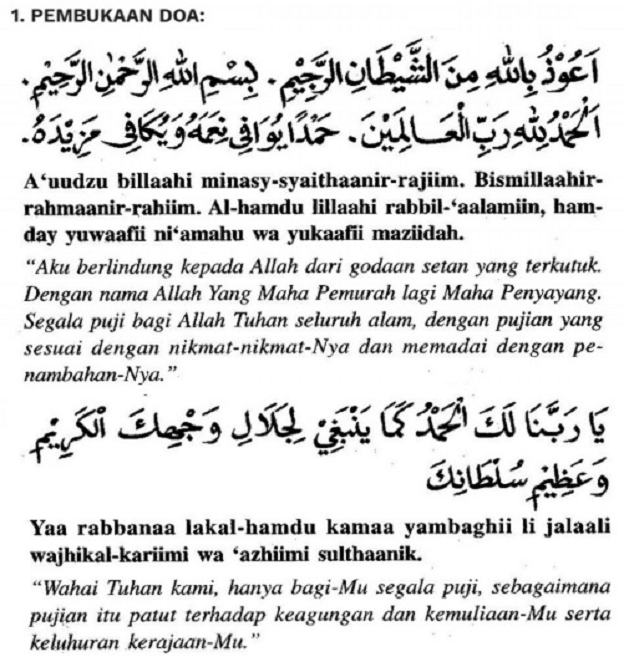 1. PEMBUKAAN DOA:
اَعُوْذُ بِاللهِ مِنَ الشَّيْطَانِ الرَّجِيْمِ. بِسْمِ اللهِ الرَّحْمٰنِ الرَّحِيْمِ.
اَلْحَمْدُ لِلّٰهِ رَبِّ الْعَالَمِيْنَ. حَمْدًا يُوَافِى نِعَمَهُ وَيُكَافِى مَزِيْدَهُ.
A‘uudzu billaahi minasy-syaithaanir-rajiim. Bismillaahir-
rahmaanir-rahiim. Al-hamdu lillaahi rabbil-‘aalamiin, ham-
day yuwaafii ni‘amahu wa yukaafii maziidah.
“Aku berlindung kepada Allah dari godaan setan yang terkutuk.
Dengan nama Allah Yang Maha Pemurah lagi Maha Penyayang.
Segala puji bagi Allah Tuhan seluruh alam, dengan pujian yang
sesuai dengan nikmat-nikmat-Nya dan memadai dengan pe-
nambahan-Nya.”
يَا رَبَّنَا لَكَ الْحَمْدُ كَمَا يَنْبَغِيْ لِجَلَالِ وَجْهِكَ الْكَرِيْمِ
وَعَظِيْمِ سُلْطَانِكَ
Yaa rabbanaa lakal-hamdu kamaa yambaghii li jalaali
wajhikal-kariimi wa ‘azhiimi sulthaanik.
“Wahai Tuhan kami, hanya bagi-Mu segala puji, sebagaimana
pujian itu patut terhadap keagungan dan kemuliaan-Mu serta
keluhuran kerajaan-Mu.”